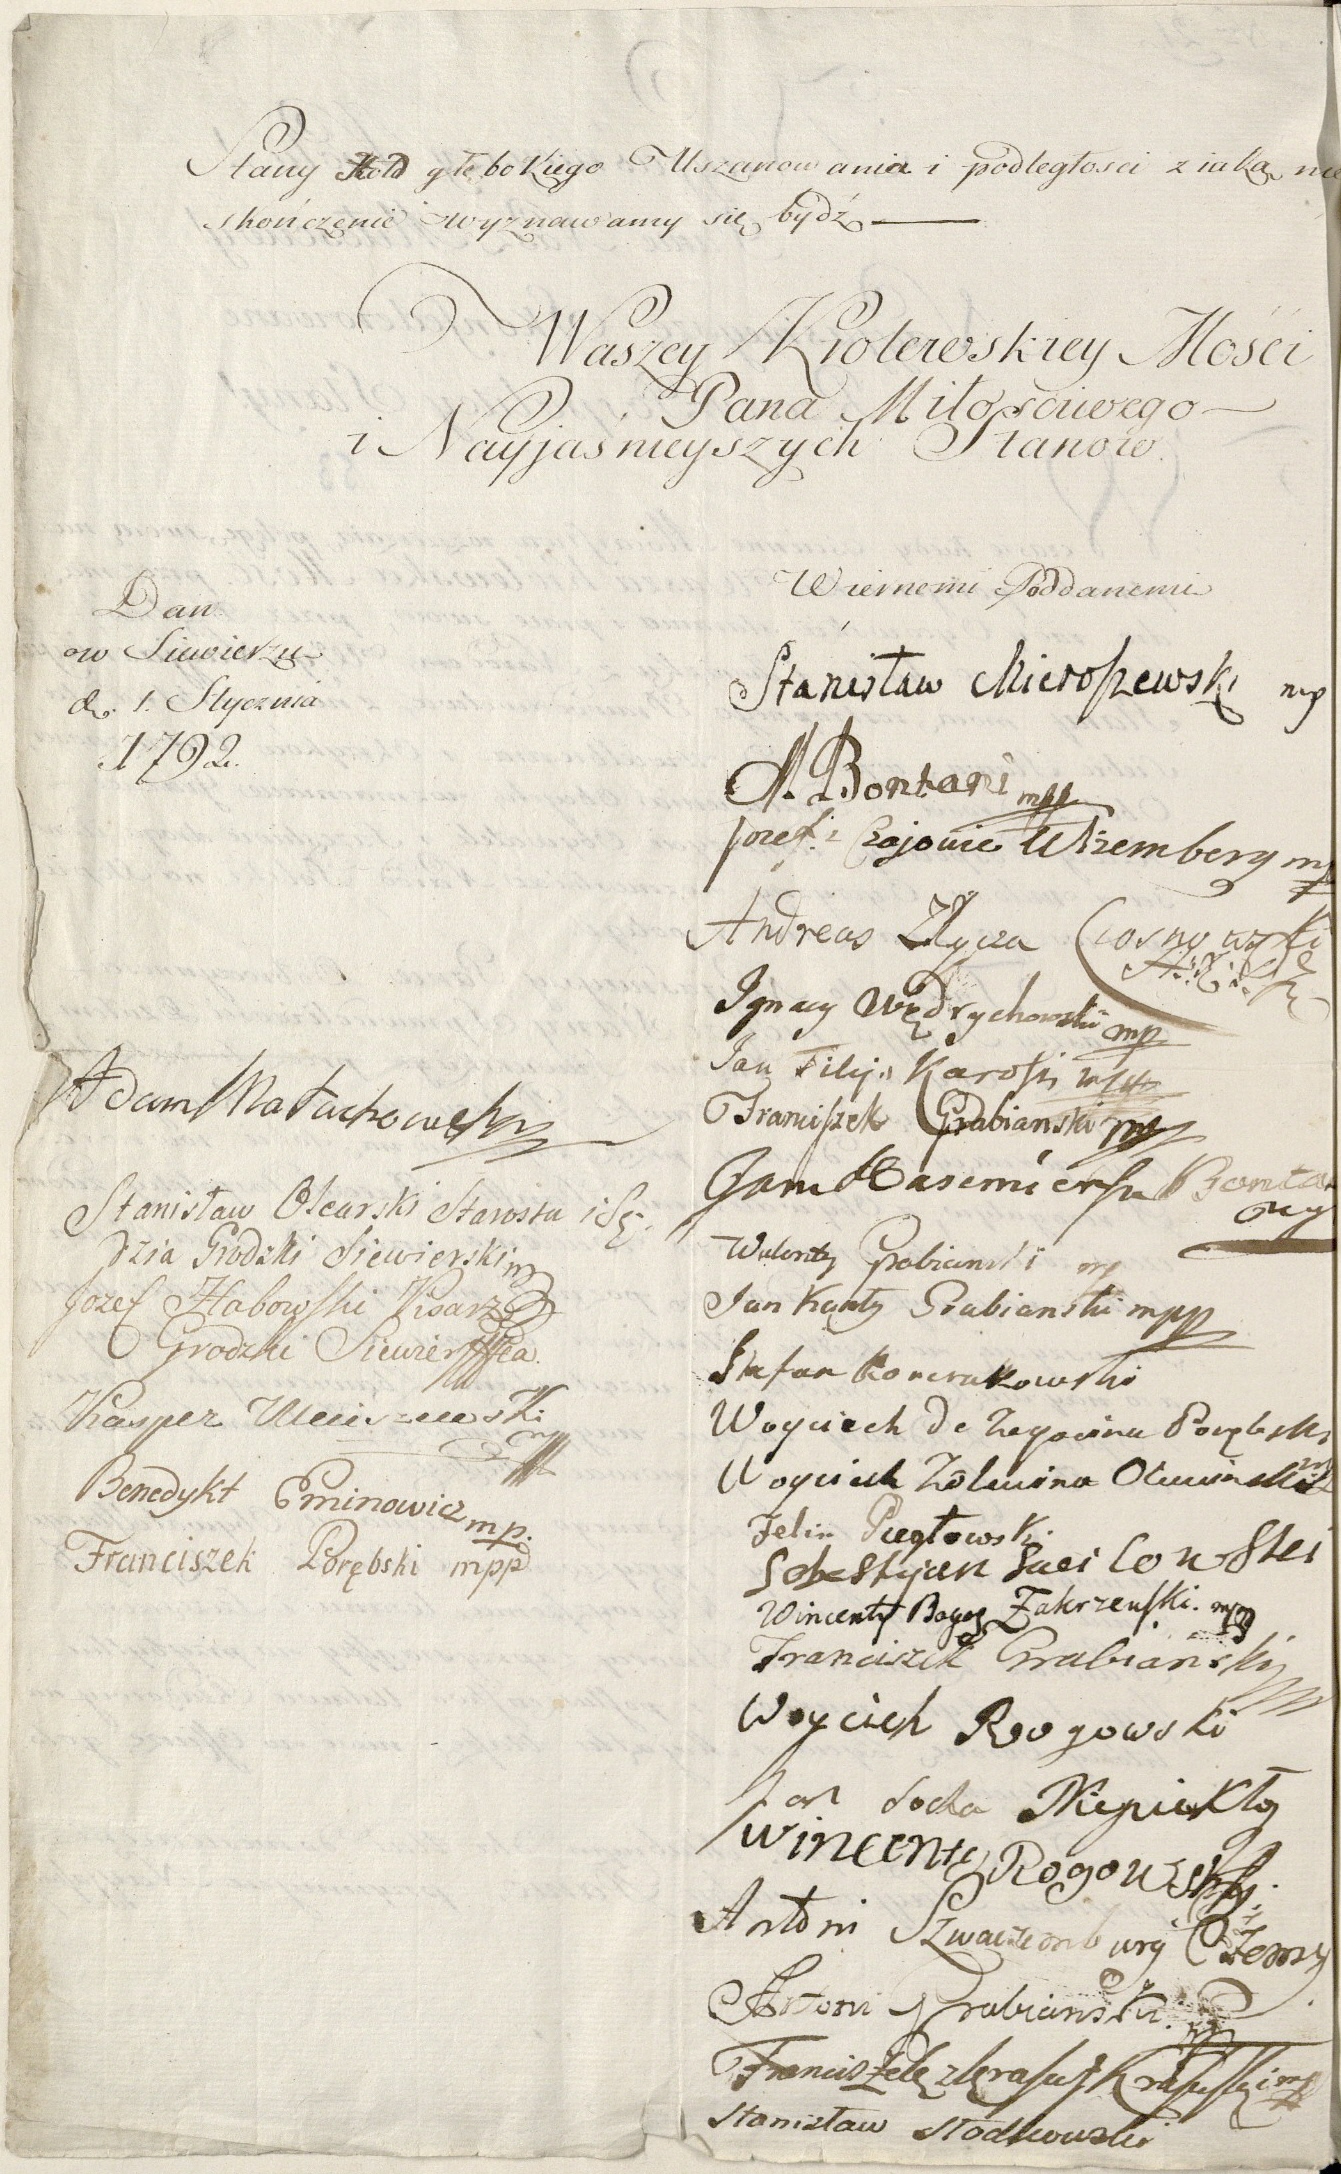 Stany Hołd głębokiego Uszanowania i podległosci z iaką nie
skończenie wyznawamy się bydź
Waszey Krolewskiey Mości
Pana Miłościwego
i Nayjaśnieyszych Stanow.
Dan
w Siewierzu
d. 1. Stycznia
1792.
Wiernemi Poddanemi
Stanisław Mieroszewski mp
A. Bontani mpp
Jozef z Wirzemberg mp
Andreas Ciosnowski
Ignacy Wędrychowski mp
Jan Filip Karoski mpp
Franciszek Grabianski mp
Jan Kasemiersz Bonta
ny
Walenty Grabianski mp
Jan Kanty Grabianski mpp
Stefan Konczakowski
Woyciech de Zegocina Porębski
Woyciech
Felix Piegłowski
Sebestyjan
Wincenty Zakrzewski. mpp
Franciszek Grabiański
Woyciech Rogowski
Jan Socha Niepiekły
Wincenty Rogowski
Antoni Szwarzemburg Czerny
Antoni Grabianski. mp
Franciszek mp
Stanisław Słodkowski
Adam Małachowski
Stanisław Olearski Starosta i Sę-
dzia Grodzki Siewierski mp
Jozef Żłabowski Pisarz
Grodzki Siewier
Kasper Mieiszewski
Benedykt Eminowicz mp.
Franciszek Porębski mpp